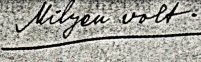 Milyen volt.